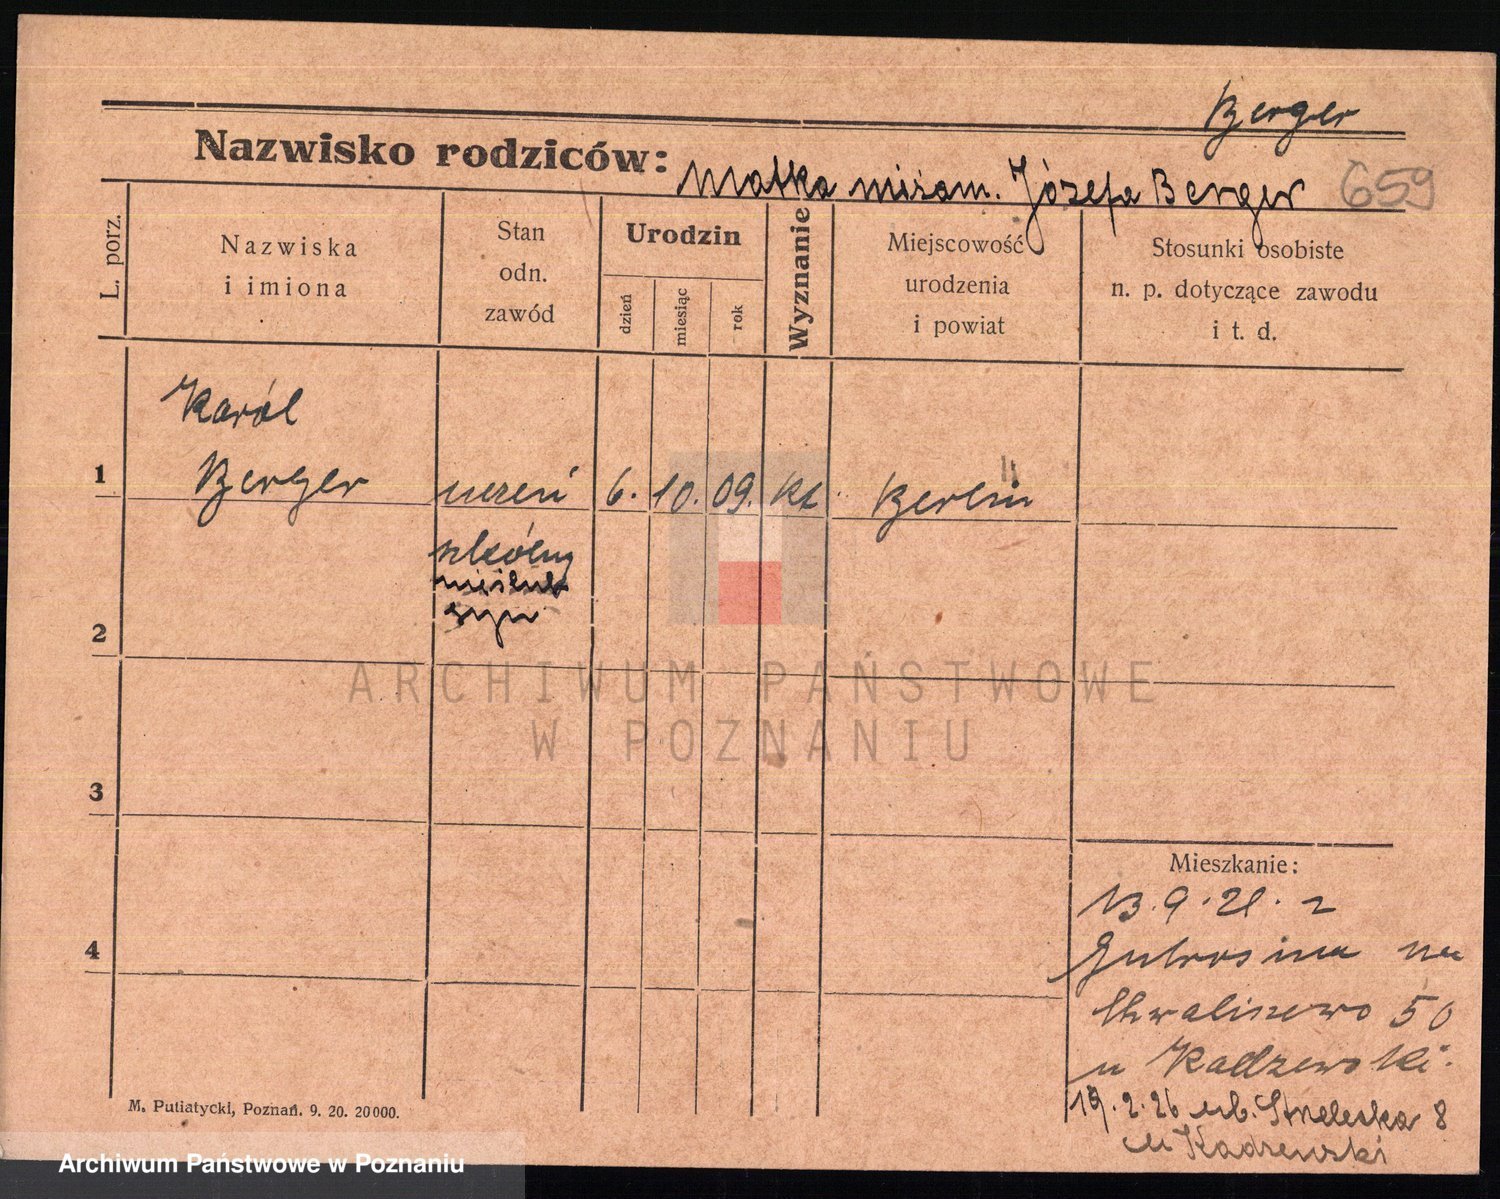 Berger
Nazwisko rodziców: Matka niezam. Józefa Berger 659
L. porz.
Nazwiska
i imiona
Stan
odn.
zawód
Urodzin
dzień
miesiąc
rok
Wyznanie
Miejscowość
urodzenia
i powiat
Stosunki osobiste
n. p. dotyczące zawodu
i t. d.
Karól
1 Berger uczeń 6. 10. 09. kt. Berlin
szkólny
nieślub
syn
2
3
4
Mieszkanie:
13.9.21. z
Gutrosina na
Chwaliszewo 50
u Kadzewski.
19.2.26 ul. Strzelecka 8
u Kadzewski
M. Putiatycki, Poznań. 9. 20. 20000.
ARCHIWUM PAŃSTWOWE
W POZNANIU
Archiwum Państwowe w Poznaniu